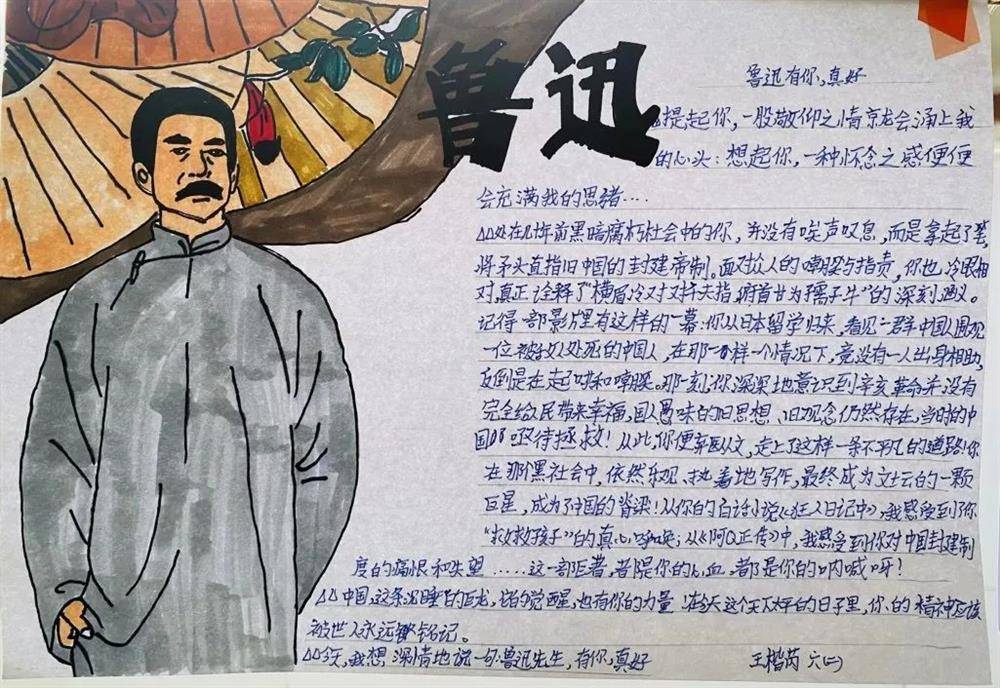 鲁迅
鲁迅有你,真好
提起你,一股敬仰之情京龙会涌上我
的心头:想起你,一种怀念之感便便
会充满我的思绪....
处在几十年前黑暗腐朽社会中的你,并没有唉声叹息,而是拿起了笔,
将矛头直指旧中国的封建帝制。面对众人的嘲笑与指责,你也冷眼相
对,真正诠释了"横眉冷对千夫指,俯首甘为孺子牛"的深刻涵义。
记得一部影片里有这样的一幕:你从日本留学归来,看见一群中国人围观
一位被处死的中国人,在那样一个情况下,竟没有一人出身相助,
反倒是在起哄和嘲笑。那一刻,你深深地意识到辛亥革命并没有
完全给人民带来幸福,国人愚昧的旧思想、旧观念仍然存在,当时的中
国亟待拯救!从此,你便弃医从文,走上了这样一条不平凡的道路!你
在那黑社会中,依然乐观、执着地写作,最终成为文坛的一颗
巨星,成为了中国的脊梁!从你的白话小说《狂人日记中》,我感受到了你
"救救孩子"的真心呼唤;从《阿Q正传》中,我感受到你对中国封建制
度的痛恨和失望......这一部巨著,皆是你的心血,都是你的呐喊呀!
中国,这条沉睡的巨龙,它的觉醒,也有你的力量 在今天这个天下太平的日子里,你的精神应该
被世人永远铭记。
今天,我想深情地说一句:鲁迅先生,有你,真好
王楷芮 六(二)